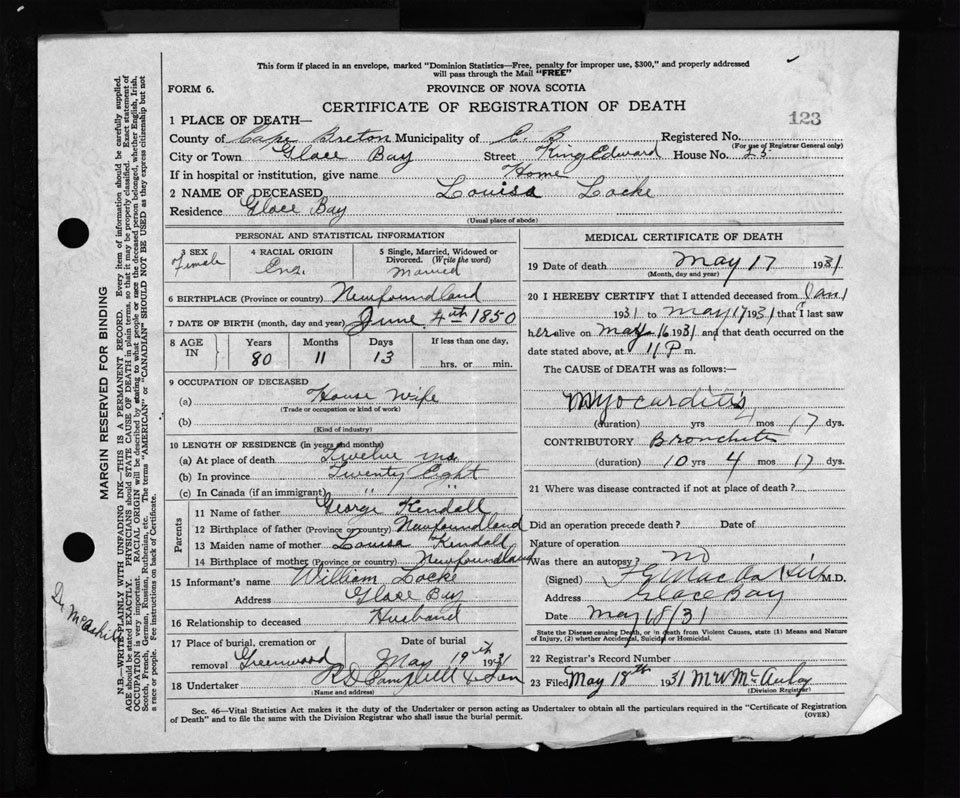 This form if placed in an envelope, marked "Dominion Statistics—Free, penalty for improper use, $300," and properly addressed
will pass through the Mail "FREE"
FORM 6. PROVINCE OF NOVA SCOTIA
CERTIFICATE OF REGISTRATION OF DEATH
123
1 PLACE OF DEATH—
County of Cape Breton Municipality of C. B. Registered No.
(For use of Registrar General only)
City or Town Glace Bay Street King Edward House No. 25
If in hospital or institution, give name Home
2 NAME OF DECEASED Louisa Locke
Residence Glace Bay
(Usual place of abode)
PERSONAL AND STATISTICAL INFORMATION
3 SEX
Female
4 RACIAL ORIGIN
Eng.
5 Single, Married, Widowed or
Divorced. (Write the word)
Married
6 BIRTHPLACE (Province or country) Newfoundland
7 DATE OF BIRTH (month, day and year) June 4th 1850
8 AGE
IN
Years
80
Months
11
Days
13
If less than one day,
hrs. or min.
9 OCCUPATION OF DECEASED
(a) House Wife
(Trade or occupation or kind of work)
(b)
(Kind of industry)
10 LENGTH OF RESIDENCE (in years and months)
(a) At place of death Twelve ms
(b) In province Twenty Eight
(c) In Canada (if an immigrant) " "
Parents
11 Name of father George Kendall
12 Birthplace of father (Province or country) Newfoundland
13 Maiden name of mother Louisa Kendall
14 Birthplace of mother (Province or country) Newfoundland
15 Informant's name William Locke
Address Glace Bay
16 Relationship to deceased Husband
17 Place of burial, cremation or
removal Greenwood
Date of burial
May 19th 1931
18 Undertaker R D Campbell & Son
(Name and address)
MEDICAL CERTIFICATE OF DEATH
19 Date of death May 17 1931
(Month, day and year)
20 I HEREBY CERTIFY that I attended deceased from Jan 1
1931 to May 17 1931 that I last saw
her alive on May 16 1931 and that death occurred on the
date stated above, at 11 P m.
The CAUSE of DEATH was as follows:—
Myocarditis
(duration) yrs 4 mos 17 dys.
CONTRIBUTORY Bronchitis
(duration) 10 yrs 4 mos 17 dys.
21 Where was disease contracted if not at place of death?
Did an operation precede death? Date of
Nature of operation
Was there an autopsy? no
(Signed) M.D.
Address Glace Bay
Date May 18/31
State the Disease causing Death, or in death from Violent Causes, state (1) Means and Nature
of Injury, (2) whether Accidental, Suicidal or Homicidal.
22 Registrar's Record Number
23 Filed May 18th 1931 M W McAulay
(Division Registrar)
Sec. 46—Vital Statistics Act makes it the duty of the Undertaker or person acting as Undertaker to obtain all the particulars required in the "Certificate of Registration
of Death" and to file the same with the Division Registrar who shall issue the burial permit.
(OVER)
MARGIN RESERVED FOR BINDING
N.B.—WRITE PLAINLY WITH UNFADING INK—THIS IS A PERMANENT RECORD. Every item of information should be carefully supplied.
AGE should be stated EXACTLY. PHYSICIANS should STATE CAUSE OF DEATH in plain terms, so that it may be properly classified. Exact statement of
OCCUPATION is very important. RACIAL ORIGIN will be described by stating to what people or race the deceased person belonged, whether English, Irish,
Scotch, French, German, Russian, Ruthenian, etc. The terms "AMERICAN" or "CANADIAN" SHOULD NOT BE USED as they express citizenship but not
a race or people. See instructions on back of Certificate.
Dr McAskill